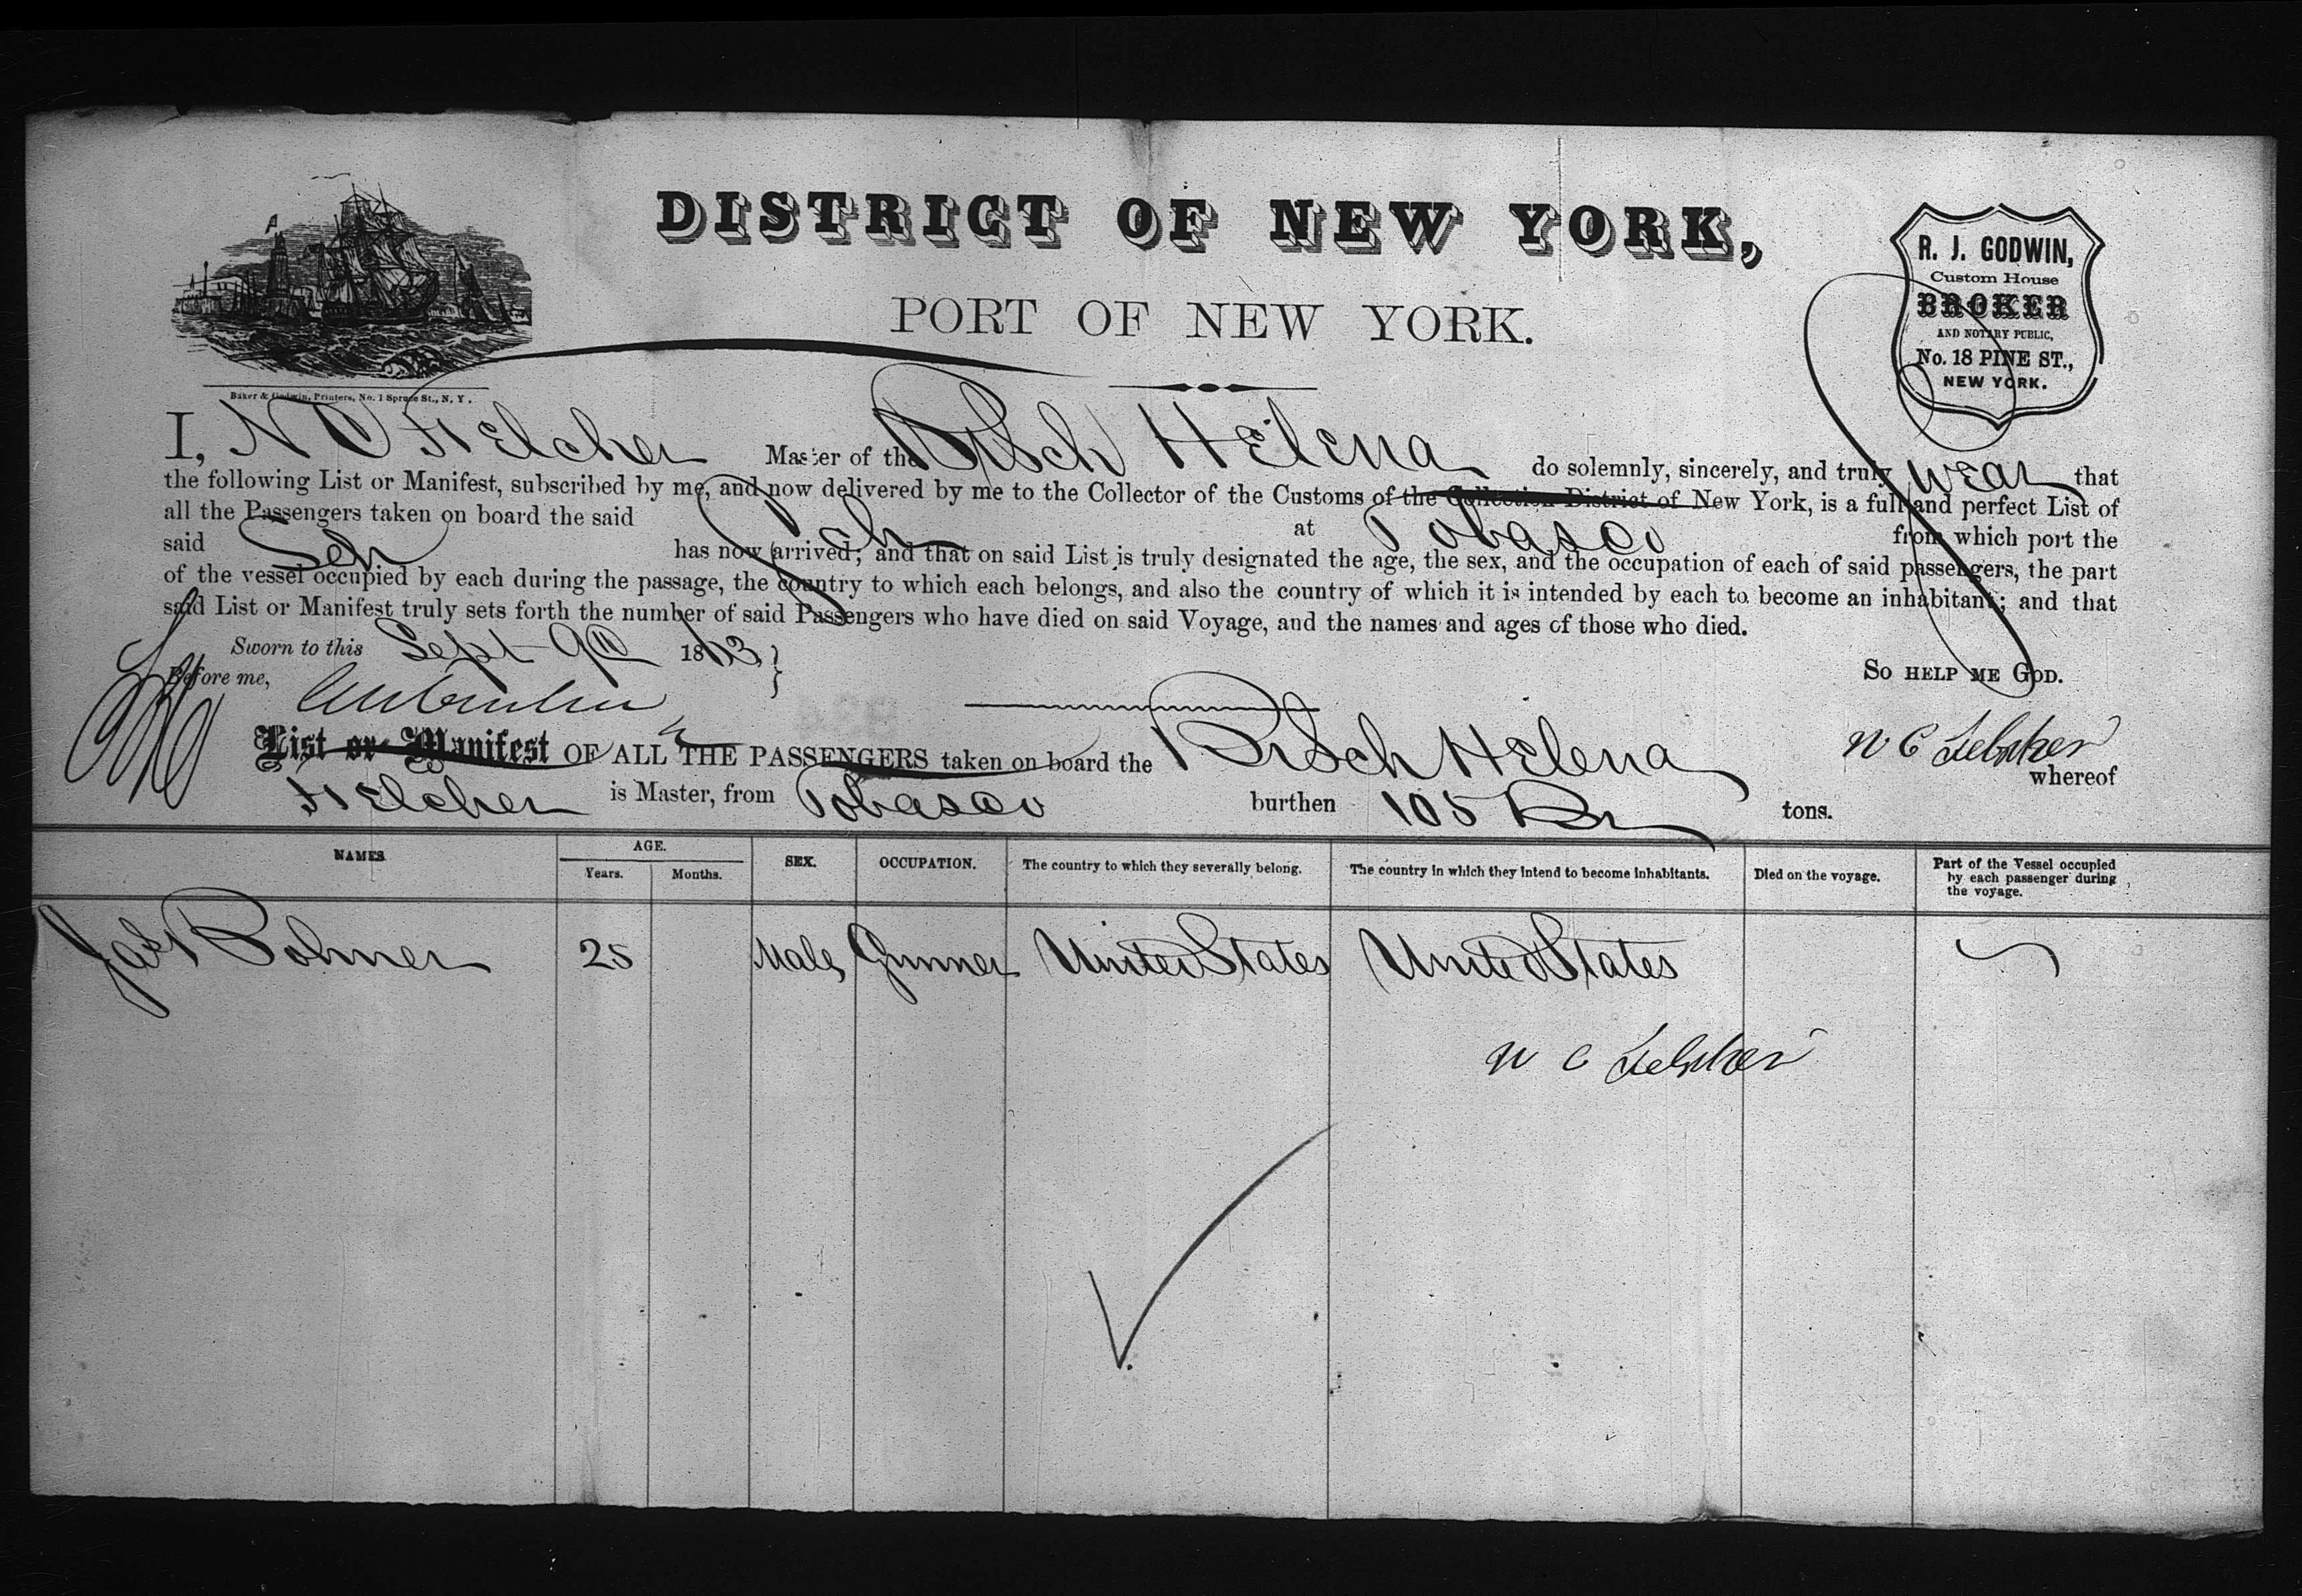 DISTRICT OF NEW YORK,
PORT OF NEW YORK.
R. J. GODWIN,
Custom House
BROKER
AND NOTARY PUBLIC,
No. 18 PINE ST.,
NEW YORK.
Baker & Godwin, Printers, No. 1 Spruce St., N. Y.
I, N C Fletcher Master of the Br Sch Helena do solemnly, sincerely, and truly swear that
the following List or Manifest, subscribed by me, and now delivered by me to the Collector of the Customs of the Collection District of New York, is a full and perfect List of
all the Passengers taken on board the said Sch at Tobasco from which port the
said Sch has now arrived; and that on said List is truly designated the age, the sex, and the occupation of each of said passengers, the part
of the vessel occupied by each during the passage, the country to which each belongs, and also the country of which it is intended by each to become an inhabitant; and that
said List or Manifest truly sets forth the number of said Passengers who have died on said Voyage, and the names and ages of those who died.
Sworn to this Sept 9th 1863
So HELP ME GOD.
Before me,
List or Manifest OF ALL THE PASSENGERS taken on board the Br Sch Helena whereof
is Master, from Tobasco burthen 105 tons.
NAMES AGE. Years. Months. SEX. OCCUPATION. The country to which they severally belong. The country in which they intend to become inhabitants. Died on the voyage. Part of the Vessel occupied by each passenger during the voyage.
25 Male Gunner United States United States